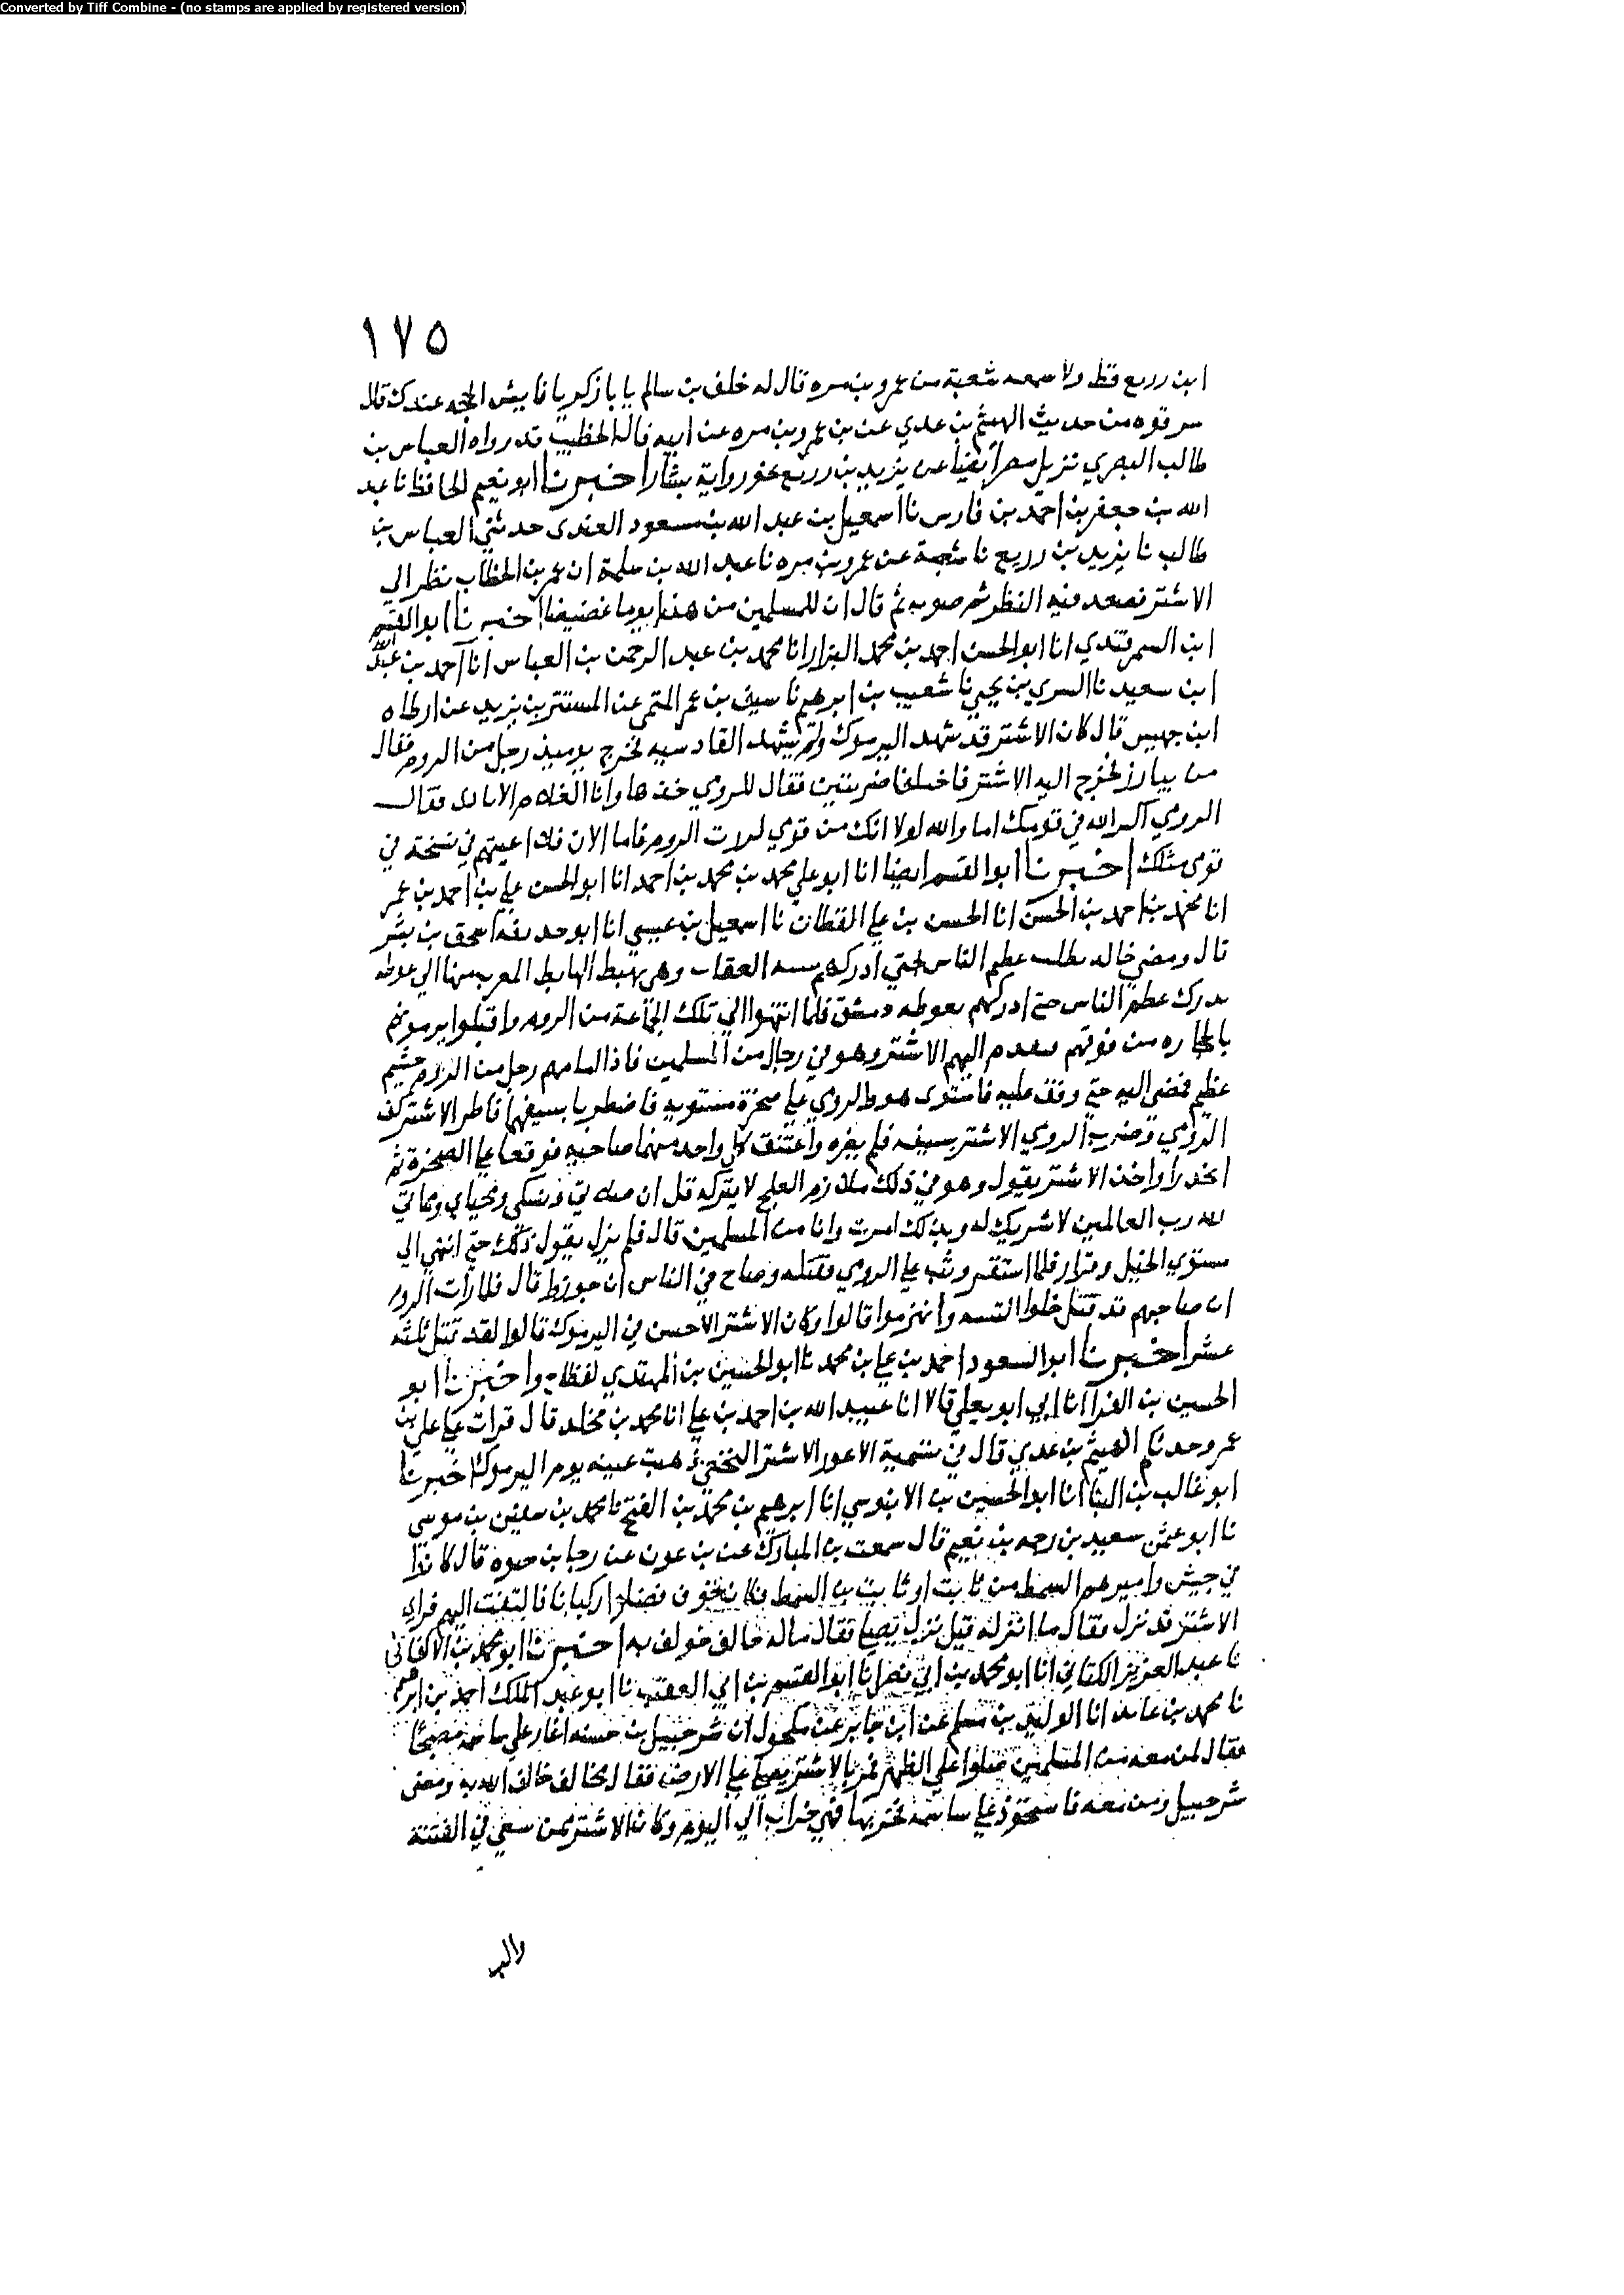 Converted by Tiff Combine - (no stamps are applied by registered version)
١٧٥
ابن زريع قط ولا سمعه شعبة من عمرو بن مره قال له خلف بن سالم يا با زكريا فايش الحجه عندك قال
سرقوه من حديث الهيثم بن عدي عن بن عمرو بن مره عن ابيه قال الخطيب قد رواه العباس بن
طالب البصري نزيل مصر ايضا عن يزيد بن زريع نحو رواية بشار اخبرنا ابو نعيم الحافظ نا عبد
الله بن جعفر بن احمد بن فارس نا اسمعيل بن عبد الله بن مسعود العبدى حدثني العباس بن
طالب نا يزيد بن زريع نا شعبة عن عمرو بن مره نا عبد الله بن سلمة ان عمر بن الخطاب نظر الي
الاشتر فصعد فيه النظر ثم صوبه ثم قال ان للمسلمين من هذا يوما اخبرنا ابو القسم
ابن السمرقندي انا ابو الحسن احمد بن محمد البزار انا محمد بن عبد الرحمن بن العباس انا احمد بن عبد الله
ابن سعيد نا السري بن يحيي نا شعيب بن ابرهيم نا سيف بن عمر التمي عن المستنير بن يزيد عن ارطاه
ابن جهيس قال كان الاشتر قد شهد اليرموك ولم يشهد القادسيه فخرج يوميذ رجل من الروم فقال
من يبارز فخرج اليه الاشتر فاختلفا ضربتين فقال للرومي خذها وانا الغلام الايادى فقال
الرومي اكثر الله في قومك اما والله لولا انك من قومي الروم فاما الان فلا اعينهم في نسخة في
قومى مثلك اخبرنا ابو القسم ايضا انا ابو علي محمد بن محمد بن احمد انا ابو الحسن علي بن احمد بن عمر
انا محمد بن احمد بن الحسن انا الحسن بن علي القطان نا اسمعيل بن عيسي انا ابو حذيفه اسحق بن بشر
قال ومضي خالد يطلب عظم الناس حتي ادركهم بثنيه العقاب وهي تهبط الهابط المغرب منها الي غوطه
يدرك عظم الناس حتي ادركهم بغوطه دمشق فلما انتهوا الي تلك الجماعة من الروم واقبلوا يرمونهم
بالحجاره من فوقهم فتقدم اليهم الاشتر وهو في رجال من المسلمين فاذا امامهم رجل من الروم جسيم
عظيم فمضي اليه حتي وقف عليه فاستوى هو والرومي علي صخرة مستويه فاضطربا بسيفيهما فاطر الاشتر كف
الرومي وضرب الرومي الاشتر بسيفه فلم يضره واعتنق كل واحد منهما صاحبه فوقعا علي الصخرة ثم
انحدرا واخذ الاشتر يقول وهو في ذلك ملازم العلج لا يتركه قل ان صلاتي ونسكى ومحياي ومماتي
لله رب العالمين لا شريك له وبذلك امرت وانا من المسلمين قال فلم يزل يقول ذلك حتي انتهي الي
مستوي الجبل وقرار فلما استقر وثب علي الرومي فقتله وصاح في الناس ان جوزوا قال فلما رات الروم
ان صاحبهم قد قتل خلوا الثنيه وانهزموا قالوا وكان الاشتر الاحسن في اليرموك قالوا لقد قتل ثلثه
عشر اخبرنا ابو السعود احمد بن علي بن محمد نا ابو الحسين بن المهتدي لفظا ح واخبرنا ابو
الحسين بن الفرا انا ابي ابو يعلي قالا انا عبيد الله بن احمد بن علي انا محمد بن مخلد قال قرات علي علي بن
عمرو حدثكم الهيثم بن عدي قال في تسمية الاعور الاشتر النخعي ذهبت عينه يوم اليرموك اخبرنا
ابو غالب بن البنا انا ابو الحسين بن الابنوسي انا ابرهيم بن محمد بن الفتح نا محمد بن سفين بن موسي
نا ابو عثمن سعيد بن رحمه بن نعيم قال سمعت بن المبارك عن بن عون عن رجا بن حيوه قال كانوا
في جيش واميرهم السمط من ثابت او ثابت بن السمط فكان خوف فصلوا ركبانا فالتفت اليهم فراي
الاشتر قد نزل فقال ما انزله قيل نزل يصلي فقال ماله خالف خولف به اخبرنا ابو محمد بن الاكفاني
نا عبد العزيز الكتاني انا ابو محمد بن ابي نصر انا ابو القسم بن ابي العقب نا ابو عبد الملك احمد بن ابرهيم
نا محمد بن عايذ انا الوليد بن مسلم عن ابن جابر عن مكحول ان شرحبيل بن حسنه اغار علي ساسمه مصبحا
فقال لمن معه من المسلمين صلوا علي الظهر فمر بالاشتر يصلي علي الارض فقال مخالف خالف الله به ومضى
شرحبيل ومن معه فاستحوذ علي ساسمه فخربها فهي خراب الي اليوم وكان الاشتر ممن سعي في الفتنة